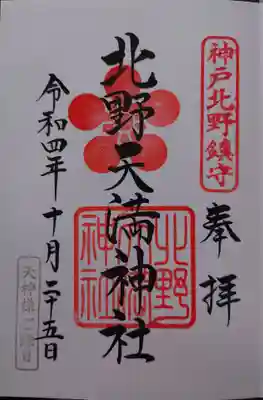 神戸北野鎮守
奉拝
北野天満神社
北野
神社
令和四年十月二十五日